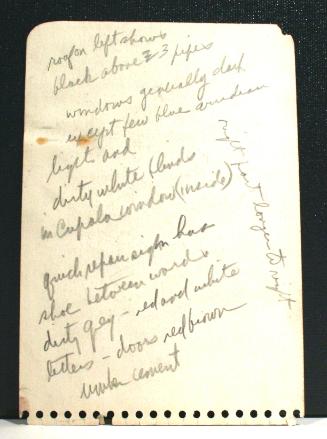 roof on left shows
black above 2 3 pipes
windows generally dark
except few blue
light and
dirty white blinds
in Cupola window (inside)
quick repair sign has
shoe between words
dirty grey - red and white
letters - doors red brown
umber cement
right part longer to right